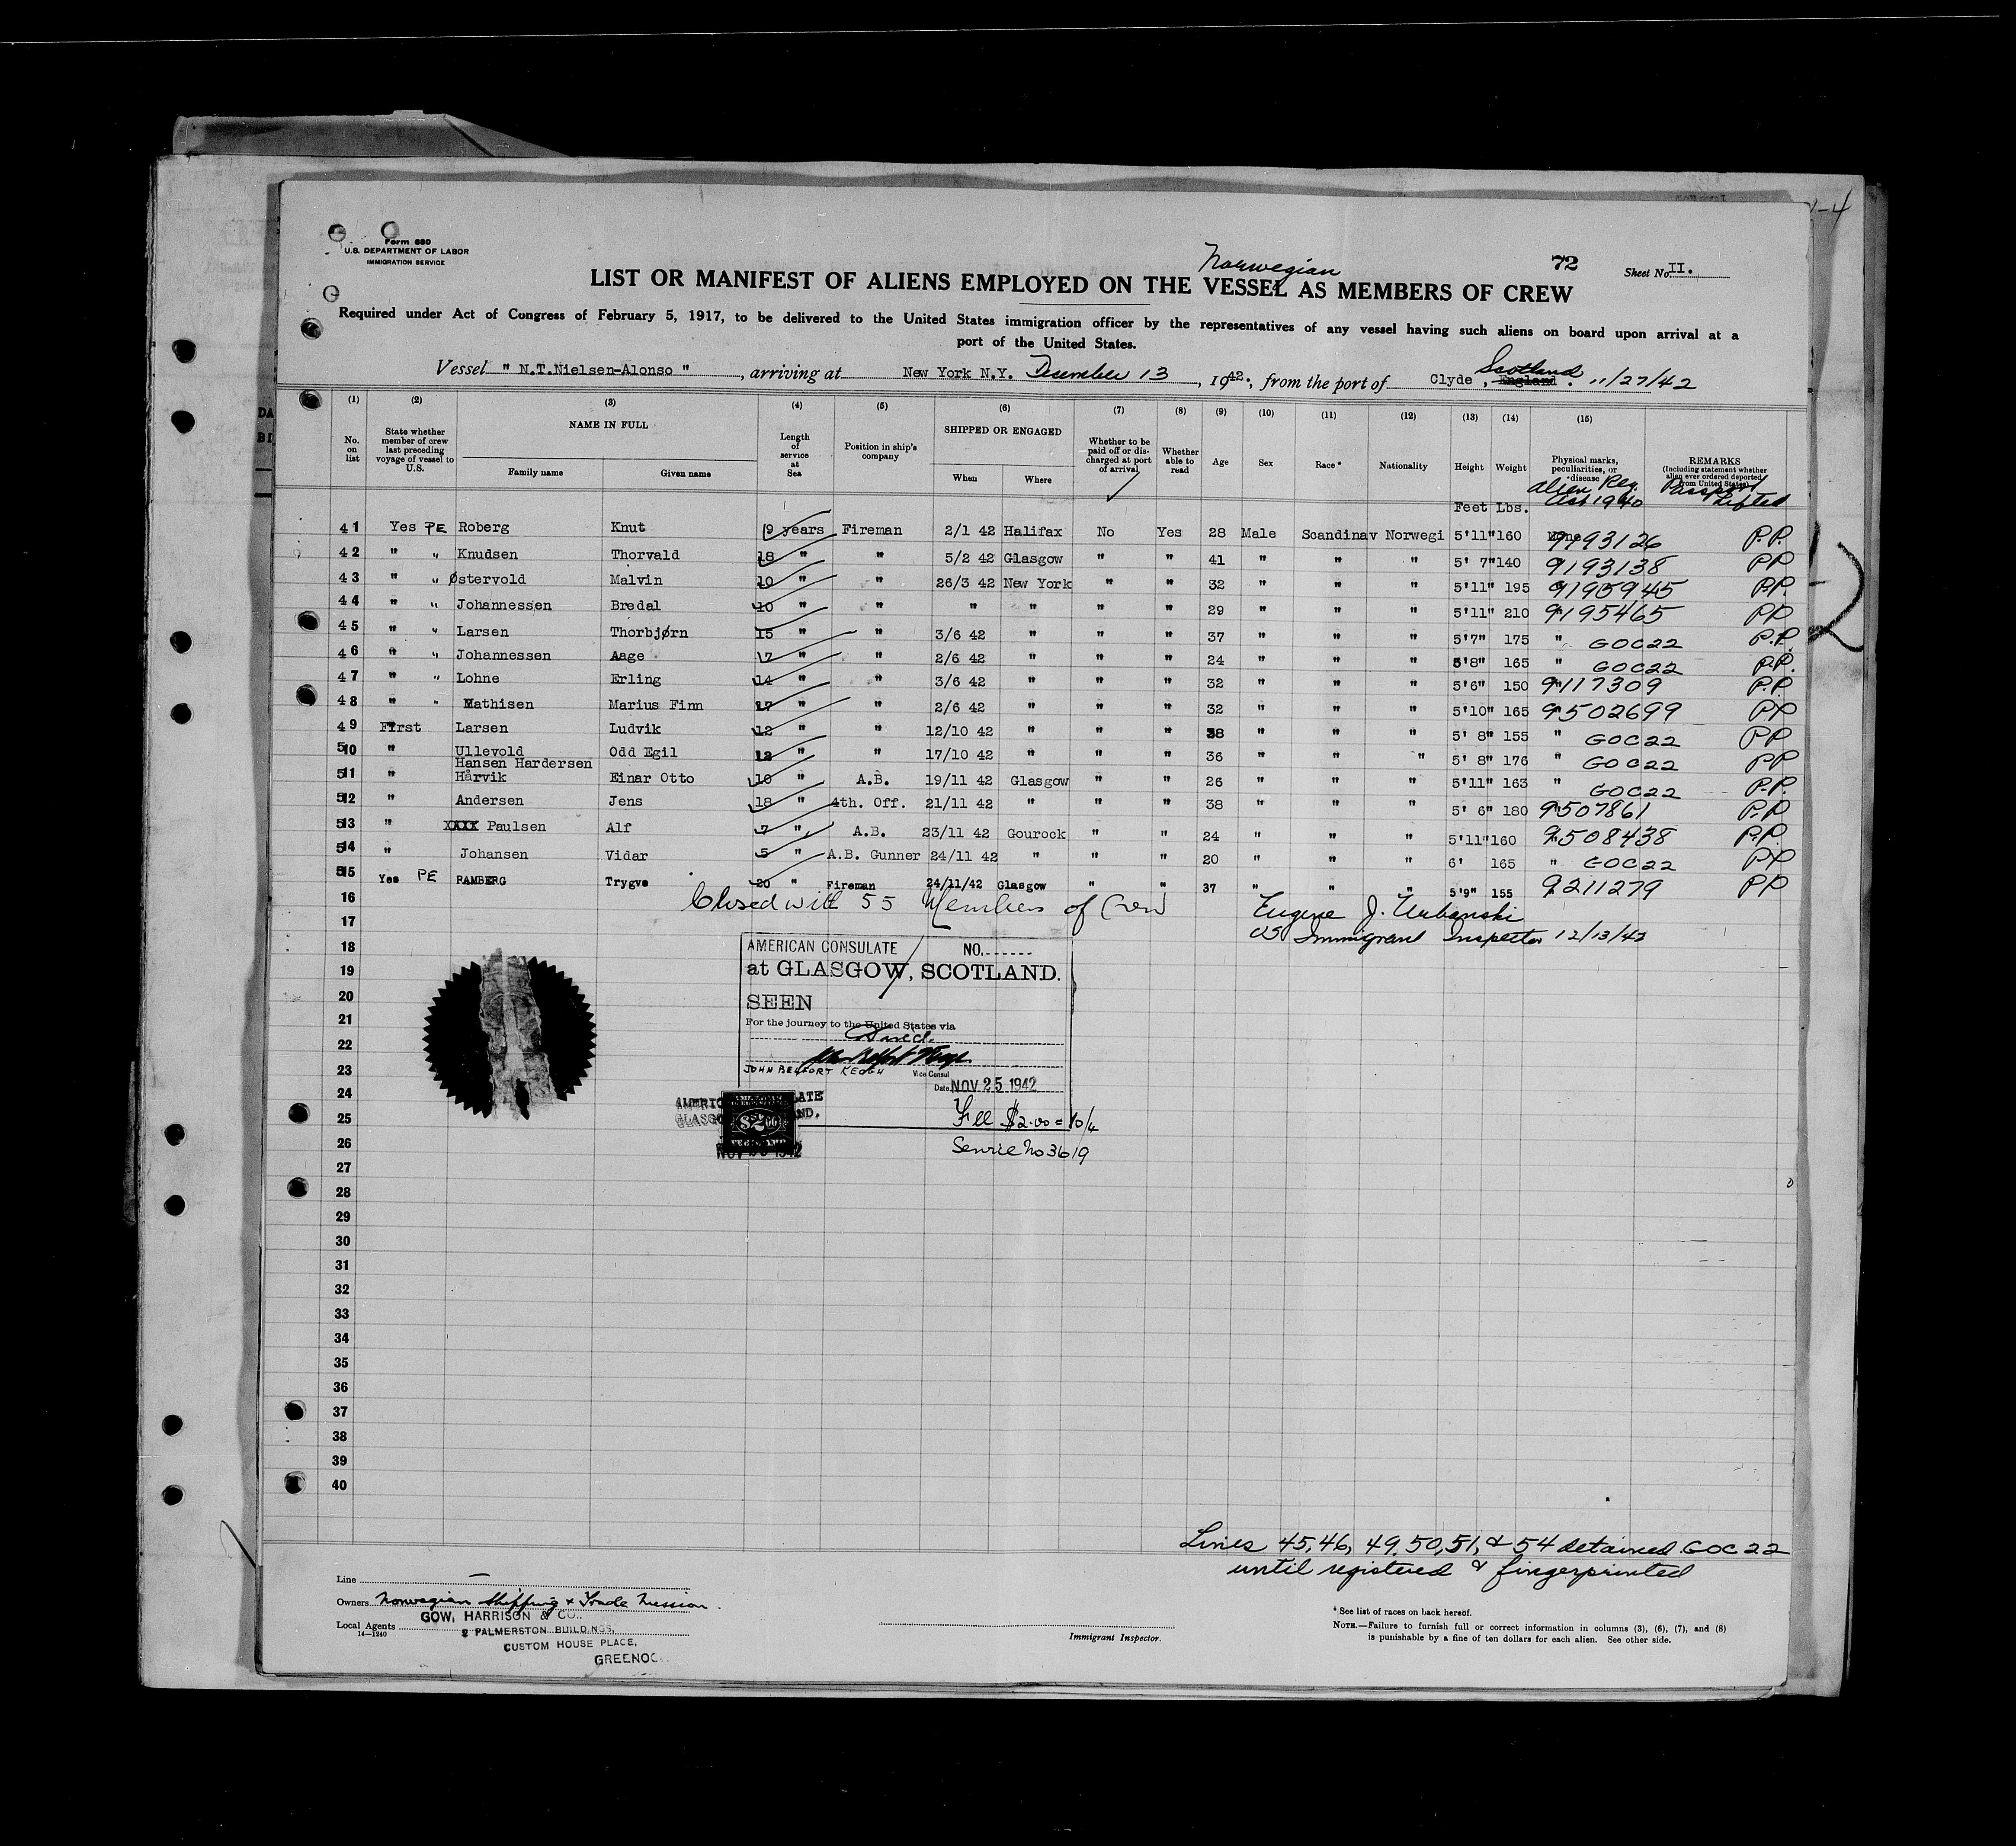 1-4
Form 680
U.S. DEPARTMENT OF LABOR
IMMIGRATION SERVICE
Norwegian
72
Sheet No. II.
LIST OR MANIFEST OF ALIENS EMPLOYED ON THE VESSEL AS MEMBERS OF CREW
Required under Act of Congress of February 5, 1917, to be delivered to the United States immigration officer by the representatives of any vessel having such aliens on board upon arrival at a
port of the United States.
Vessel " N.T.Nielsen-Alonso ", arriving at New York N.Y. December 13, 1942., from the port of Clyde, England. Scotland 11/27/42
(1) (2) (3) (4) (5) (6) (7) (8) (9) (10) (11) (12) (13) (14) (15)
No. on list State whether member of crew last preceding voyage of vessel to U.S. NAME IN FULL Family name Given name Length of service at Sea Position in ship's company SHIPPED OR ENGAGED When Where Whether to be paid off or discharged at port of arrival Whether able to read Age Sex Race* Nationality Height Weight Physical marks, peculiarities, or disease REMARKS (Including statement whether alien ever ordered deported from United States)
Alien Reg. Act 1940 Passport Lifted
Feet Lbs.
41 Yes PE Roberg Knut 9 years Fireman 2/1 42 Halifax No Yes 28 Male Scandinav Norwegi 5'11" 160 None 9193126 P.P.
42 " " Knudsen Thorvald 18 " " 5/2 42 Glasgow " " 41 " " " 5' 7" 140 9193138 PP
43 " " Østervold Malvin 10 " " 26/3 42 New York " " 32 " " " 5'11" 195 9195945 P.P.
44 " " Johannessen Bredal 10 " " " " " " 29 " " " 5'11" 210 9195465 PP
45 " " Larsen Thorbjørn 15 " " 3/6 42 " " " 37 " " " 5'7" 175 " GOC22 P.P.
46 " " Johannessen Aage 7 " " 2/6 42 " " " 24 " " " 5'8" 165 " GOC22 P.P.
47 " " Lohne Erling 14 " " 3/6 42 " " " 32 " " " 5'6" 150 9117309 P.P
48 " " Mathisen Marius Finn 17 " " 2/6 42 " " " 32 " " " 5'10" 165 9502699 PP
49 First Larsen Ludvik 12 " " 12/10 42 " " " 38 " " " 5' 8" 155 " GOC22 PP
510 " Ullevold Odd Egil 12 " " 17/10 42 " " " 36 " " " 5' 8" 176 " GOC22 PP
Hansen Hardersen
511 " Hårvik Einar Otto 10 " A.B. 19/11 42 Glasgow " " 26 " " " 5'11" 163 " GOC22 P.P.
512 " Andersen Jens 18 " 4th. Off. 21/11 42 " " " 38 " " " 5' 6" 180 9507861 P.P
513 " XXXX Paulsen Alf 7 " A.B. 23/11 42 Gourock " " 24 " " " 5'11" 160 9508438 P.P.
514 " Johansen Vidar 5 " A.B. Gunner 24/11 42 " " " 20 " " " 6' 165 " GOC22 PP
515 Yes PE PAMBERG Trygve 20 " Fireman 24/11/42 Glasgow " " 37 " " " 5'9" 155 9211279 PP
16 Closed with 55 Members of Crew Eugene J. Urbanski
17 US Immigrant Inspector 12/13/42
18 AMERICAN CONSULATE NO.
19 at GLASGOW, SCOTLAND.
20 SEEN
21 For the journey to the United States via
22
23 JOHN BELFORT KEOGH Vice Consul
24 Date NOV 25 1942
AMERICAN CONSULATE
25 GLASGOW, SCOTLAND. $2.00 Fee $2.00 = 10/4
26 Service No 3619
27
28
29
30
31
32
33
34
35
36
37
38
39
40
Lines 45, 46, 49, 50, 51, & 54 detained GOC 22
until registered & fingerprinted
Line
Owners Norwegian Shipping & Trade Mission.
Local Agents GOW, HARRISON & CO.,
14—1240
2 PALMERSTON BUILDINGS,
CUSTOM HOUSE PLACE,
GREENOC
Immigrant Inspector.
* See list of races on back hereof.
NOTE.—Failure to furnish full or correct information in columns (3), (6), (7), and (8)
is punishable by a fine of ten dollars for each alien. See other side.